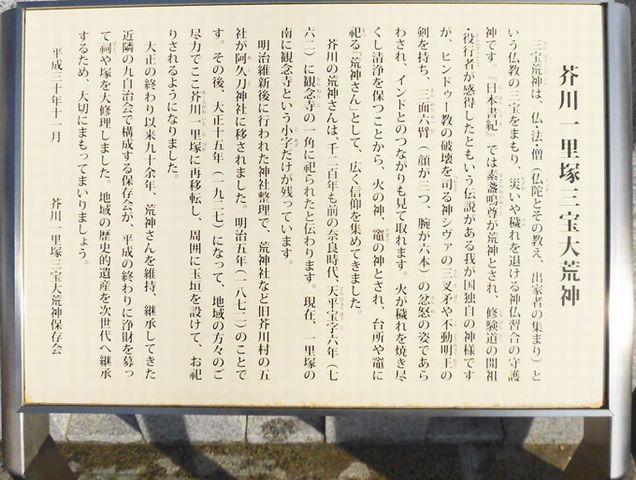 芥川一里塚三宝大荒神
三宝荒神は、仏・法・僧（仏陀とその教え、出家者の集まり）と
いう仏教の三宝をまもり、災いや穢れを退ける神仏習合の守護
神です。『日本書紀』では素盞嗚尊が荒神とされ、修験道の開祖
（役行者が感得したともいう伝説がある我が国独自の神様です
が、ヒンドゥー教の破壊を司る神シヴァの三叉矛や不動明王の
剣を持ち、三面六臂（顔が三つ、腕が六本）の忿怒の姿であら
わされ、インドとのつながりも見て取れます。火が穢れを焼き尽
くし清浄を保つことから、火の神、竈の神とされ、台所や竈に
祀る「荒神さん」として、広く信仰を集めてきました。
芥川の荒神さんは、千二百年も前の奈良時代、天平宝字六年（七
六二）に観念寺の一角に祀られたと伝わります。現在、一里塚の
南に観念寺という小字だけが残っています。
明治維新後に行われた神社整理で、荒神社など旧芥川村の五
社が阿久刀神社に移されました。明治五年（一八七二）のことで
す。その後、大正十五年（一九二七）になって、地域の方々のご
尽力でここ芥川一里塚に再移転し、周囲に玉垣を設けて、お祀
りされるようになりました。
大正の終わり以来九十余年、荒神さんを維持、継承してきた
近隣の九自治会で構成する保存会が、平成の終わりに浄財を募っ
て祠や塚を大修理しました。地域の歴史的遺産を次世代へ継承
するため、大切にまもってまいりましょう。
平成三十年十一月　芥川一里塚三宝大荒神保存会